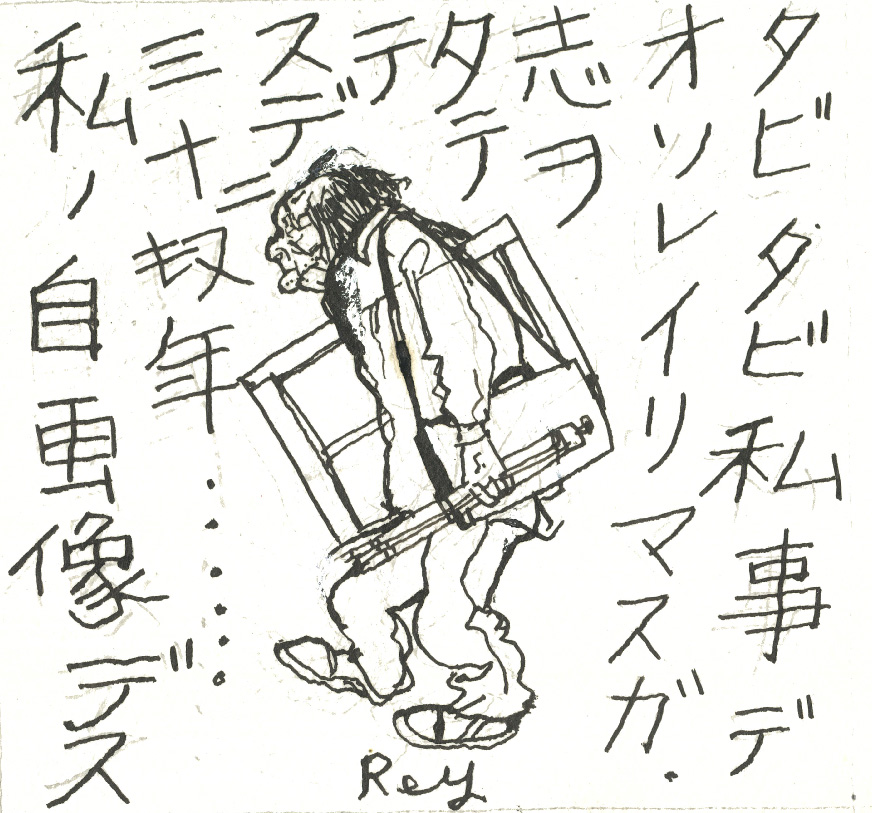 タビタビ私事デ
オソレイリマスガ.
志ヲ
タテ
テ
スデニ
三十数年......
私ノ自画像デス
Rey